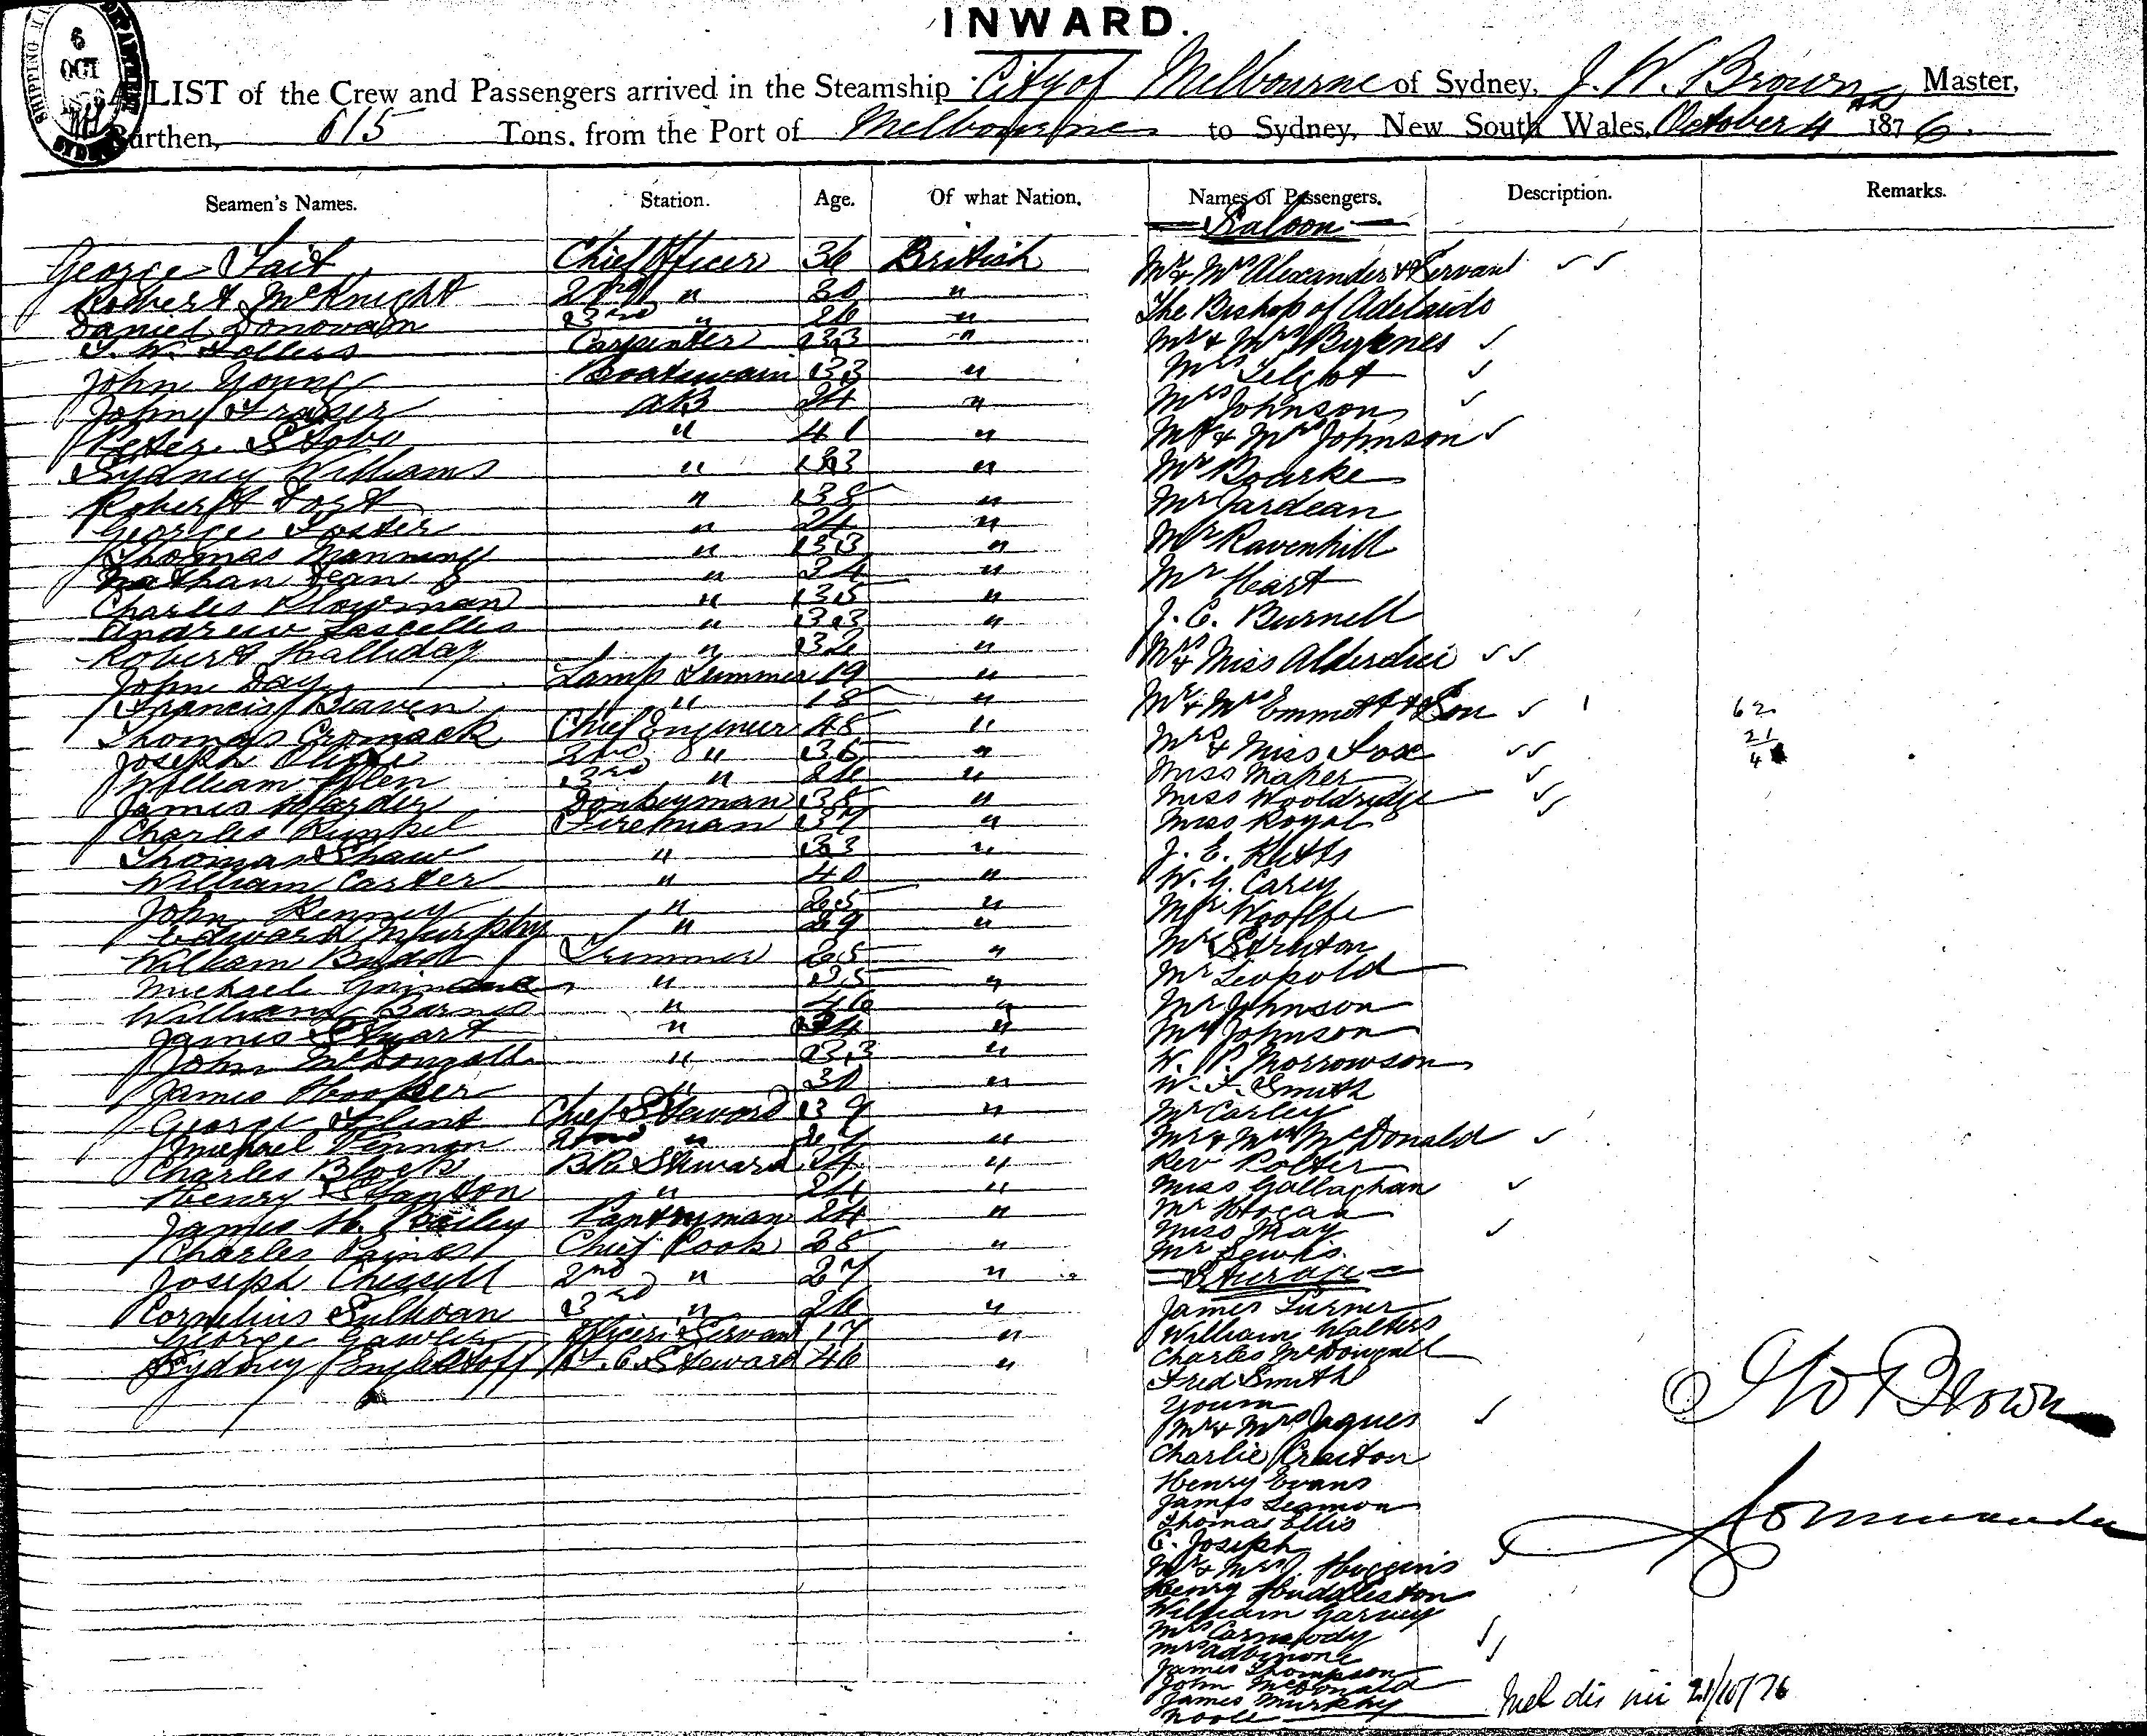 INWARD.
6
OCT
A LIST of the Crew and Passengers arrived in the Steamship City of Melbourne of Sydney, J. W. Brown Master,
Burthen, 615 Tons, from the Port of Melbourne to Sydney, New South Wales, October 4th 1876.
Seamen's Names. Station. Age. Of what Nation. Names of Passengers. Description. Remarks.
George Tait Chief Officer 36 British
Robert McKnight 2nd " 30 "
Daniel Donovan 3rd " 26 "
Carpenter 33 "
John Young Boatswain 33 "
John Fraser AB 24 "
Peter Stobo " 41 "
Sydney Williams " 33 "
Robert " 38 "
George Foster " 24 "
Thomas Manning " 33 "
Nathan " 34 "
Charles Plowman " 35 "
Andrew Lascelles " 33 "
Robert Halliday " 32 "
John Day Lamp 19 "
Francis Beaven " 18 "
Thomas Cromack Chief Engineer 48 "
Joseph 2nd " 36 "
William Allen 3rd " 26 "
James Harder Donkeyman 38 "
Charles Kunkel Fireman 37 "
Thomas Shaw " 33 "
William Carter " 40 "
John Kenney " 25 "
Edward Murphy " 29 "
William Trimmer 25 "
Michael " 35 "
William Barnes " 46 "
James Stuart " 34 "
John McDougall " 33 "
James Hooper " 30 "
George Flint Chief Steward 39 "
Michael Vernon 2nd " "
Charles Block B.R. Steward 24 "
Henry Stanton " 24 "
James H. Bailey Pantryman 24 "
Charles Paines Chief Cook 28 "
Joseph Chissell 2nd " 27 "
Cornelius Sullivan 3rd " 26 "
George Gawler Officers Servant 17 "
Sydney F.C. Steward 46 "
— Saloon —
Mr & Mrs Alexander & Servant ✓ ✓
The Bishop of Adelaide
Mr & Mrs Byrnes ✓
Mrs ✓
Mrs Johnson ✓
Mr & Mrs Johnson ✓
Mr Bourke
Mr Jardean
Mr Ravenhill
Mr Heart
J. C. Burnell
Mrs & Miss Alderdice ✓ ✓
Mr & Mrs Emmett & Son ✓ 1
62
21
4
Mrs & Miss Fox ✓ ✓
Miss Maher ✓
Miss Wooldridge ✓
Miss Royal ✓
J. E. Kitts
W. G. Carey
Mr Woolfe
Mr
Mr Leopold
Mr Johnson
Mr Johnson
W. P. Morrowson
W. F. Smith
Mr Carley
Mr & Mrs McDonald ✓
Rev Polter
Miss Gallaghan ✓
Mr Hogan
Miss May ✓
Mr Lewis
— Steerage —
James Turner
William Walters
Charles McDougall
Fred Smith
Young
Mr & Mrs Jaques ✓
Charlie Craxton
Henry Evans
James Seamon
Thomas Ellis
C. Joseph
Mr & Mrs Huggins ✓
Henry Huddleston
William Garvey
Mrs Carmody ✓
Mrs ✓
James Thompson
John McDonald
James Murphy
Brown
Commander
21/10/76